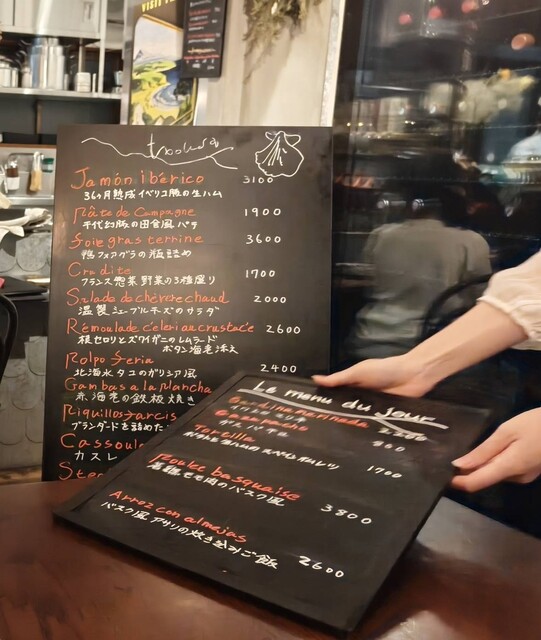 VISIT
Jamón ibérico 3100
36ヶ月熟成イベリコ豚の生ハム
Pâte de Campagne 1900
千代幻豚の田舎風パテ
foie gras terrine 3600
鴨フォアグラの瓶詰め
Crudite 1700
フランス惣菜 野菜の3種盛り
Salade de chèvre chaud 2000
温製シェーブルチーズのサラダ
Rémoulade céleri au crustacé 2600
根セロリとズワイガニのレムラード
ボタン海老添え
Polpo feria 2400
北海水タコのガリシア風
Gambas a la Plancha
赤海老の鉄板焼き
Piquillos farcis
ブランダードを詰めた
Cassoule
カスレ
Ste
Le menu du jour
Sardina marinada 2200
イワシのマリネ
Gazpacho 860
ガスパチョ
Tortilla 1700
ポテトと生ハムのスペインオムレツ
Poulet basquaise 3800
若鶏モモ肉のバスク風
Arroz con almejas 2600
バスク風アサリの炊き込みご飯